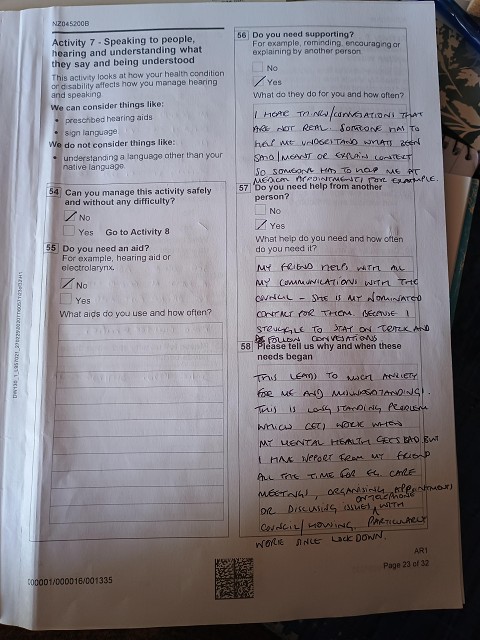 NZ045200B
Activity 7 - Speaking to people,
hearing and understanding what
they say and being understood
This activity looks at how your health condition
or disability affects how you manage hearing
and speaking.
We can consider things like:
• prescribed hearing aids
• sign language.
We do not consider things like:
• understanding a language other than your
native language.
54 Can you manage this activity safely
and without any difficulty?
No
Yes Go to Activity 8
55 Do you need an aid?
For example, hearing aid or
electrolarynx.
No
Yes
What aids do you use and how often?
56 Do you need supporting?
For example, reminding, encouraging or
explaining by another person.
No
Yes
What do they do for you and how often?
I HEAR THINGS/CONVERSATIONS THAT
ARE NOT REAL. SOMEONE HAS TO
HELP ME UNDERSTAND WHATS BEEN
SAID/MEANT OR EXPLAIN CONTEXT
SO SOMEONE HAS TO HELP ME AT
MEDICAL APPOINTMENTS FOR EXAMPLE.
57 Do you need help from another
person?
No
Yes
What help do you need and how often
do you need it?
MY FRIEND HELPS WITH ALL
MY COMMUNICATIONS WITH THE
COUNCIL - SHE IS MY NOMINATED
CONTACT FOR THEM. BECAUSE I
STRUGGLE TO STAY ON TRACK AND
FOLLOW CONVERSATIONS
58 Please tell us why and when these
needs began
THIS LEADS TO MUCH ANXIETY
FOR ME AND MISUNDERSTANDINGS.
THIS IS LONG STANDING PROBLEM
WHICH GETS WORSE WHEN
MY MENTAL HEALTH GETS BAD BUT
I HAVE SUPPORT FROM MY FRIEND
ALL THE TIME FOR EG. CARE
MEETINGS, ORGANISING APPOINTMENTS
ON TELEPHONE
OR DISCUSSING ISSUES WITH
COUNCIL/HOUSING. PARTICULARLY
WORSE SINCE LOCKDOWN.
AR1
Page 23 of 32
000001/000016/001335